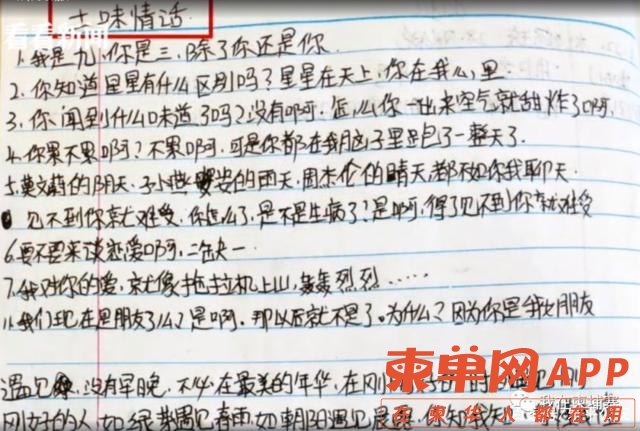 看看新闻
土味情话
1.我是九,你是三,除了你还是你.
2.你知道星星有什么区别吗?星星在天上,你在我心里
3.你闻到什么味道了吗?没有啊.怎么你一出来空气就甜炸了啊.
4.你累不累啊?不累啊.可是你都在我脑子里跑了一整天了.
5.莫文蔚的阴天.孙燕姿的雨天.周杰伦的晴天,都不如你我聊天.
见不到你就难受.你怎么了,是不是生病了?是啊,得了见不到你就难受
6.要不要来谈恋爱啊,二缺一
7.我对你的爱,就像拖拉机上山,轰轰烈烈……
11.我们现在是朋友了么?是啊.那以后就不是了。为什么?因为你是我女朋友
遇见你,没有早晚.不必在最美的年华,在刚
刚好的人.如绿芽遇见春雨.如朝阳遇见晨露.你知我知
柬单网APP
百万华人都在用
我在柬埔寨